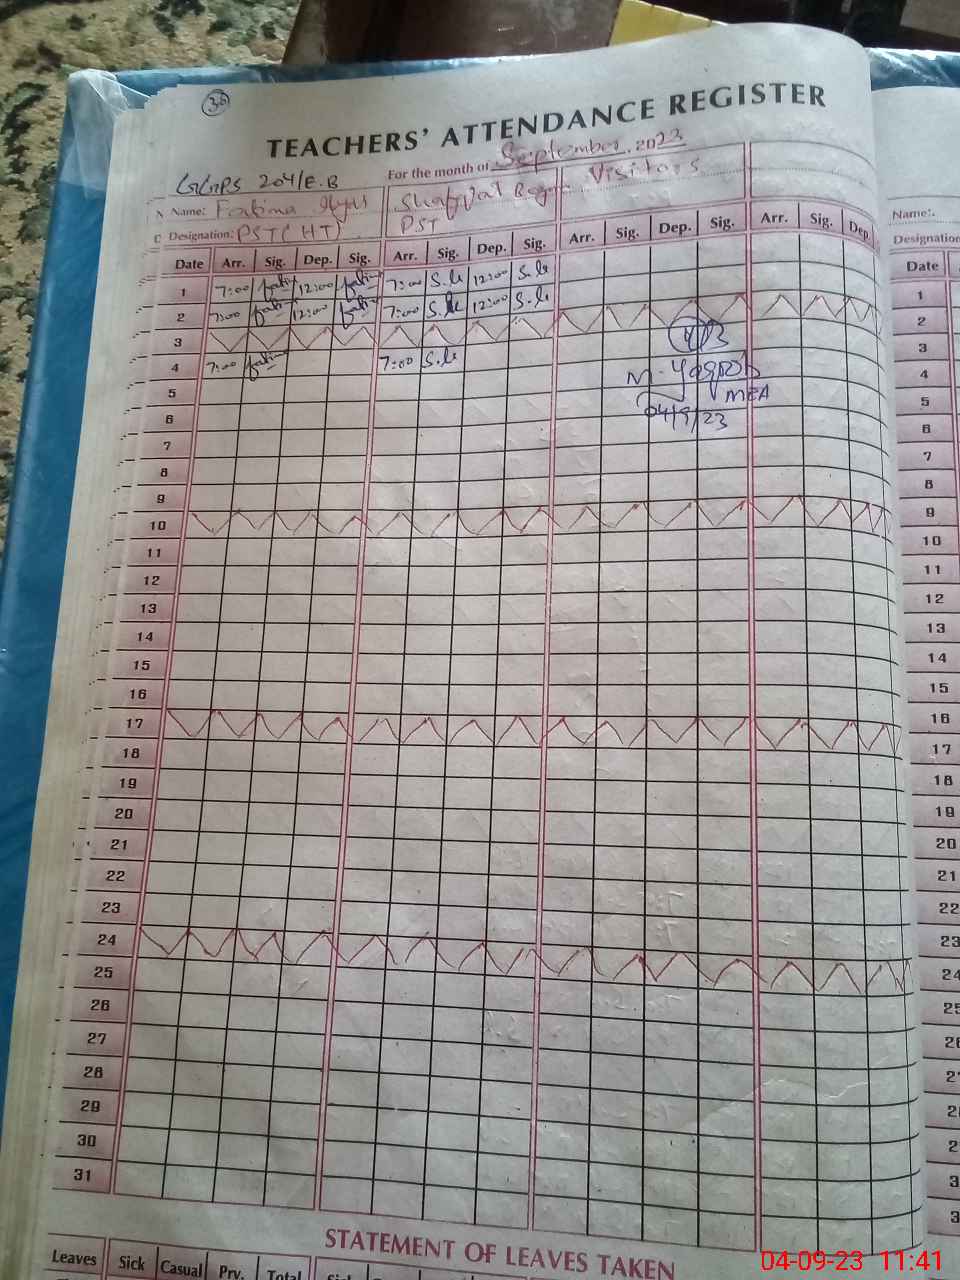 36
TEACHERS' ATTENDANCE REGISTER
For the month of September, 2023
GGPS 204/E.B
Name: Fatima
Visitors
Designation: PST(HT)
PST
Date Arr. Sig. Dep. Sig. Arr. Sig. Dep. Sig. Arr. Sig. Dep. Sig. Arr. Sig. Dep.
1 7:00 12:00 7:00 S.b 12:00 S.b
2 7:00 12:00 7:00 S.b 12:00 S.b
3
4 7:00 7:00 S.b
5
6
7
8
9
10
11
12
13
14
15
16
17
18
19
20
21
22
23
24
25
26
27
28
29
30
31
M. Yaqoob
MEA
04/9/23
STATEMENT OF LEAVES TAKEN
Leaves Sick Casual Prv. Total Sick
Name:
Designation
Date
1
2
3
4
5
6
7
8
9
10
11
12
13
14
15
16
17
18
19
20
21
22
23
24
04-09-23 11:41